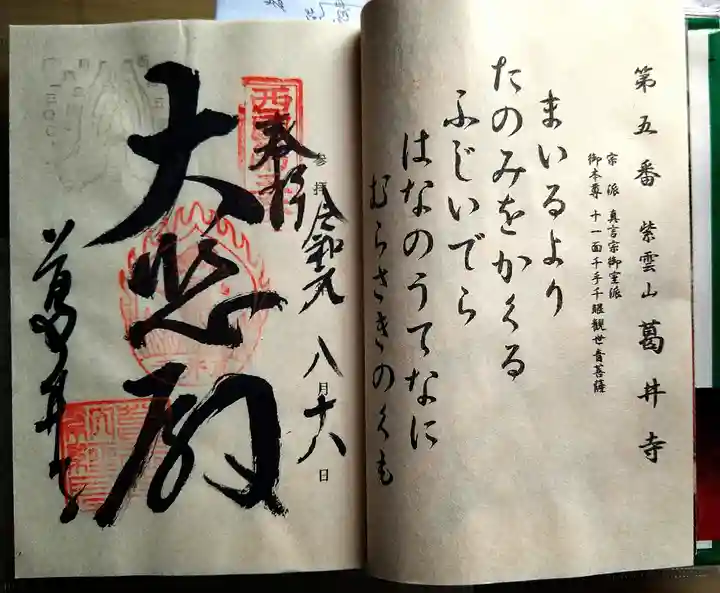 第五番 紫雲山 葛井寺
宗派 真言宗御室派
御本尊 十一面千手千眼観世音菩薩
まいるより
たのみをかくる
ふじいでら
はなのうてなに
むらさきのくも
奉拝
参拝 令和元 八月十八日
大悲殿
葛井寺